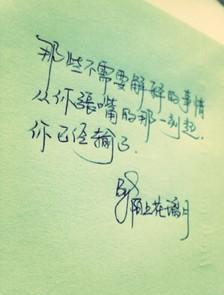 那些不需要解释的事情
从你張嘴的那一刻起.
你已经输了.
By
陌上花满月